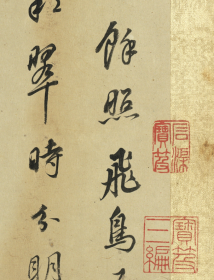 石渠寶笈
寶笈三編
餘照飛鳥
翠時分明